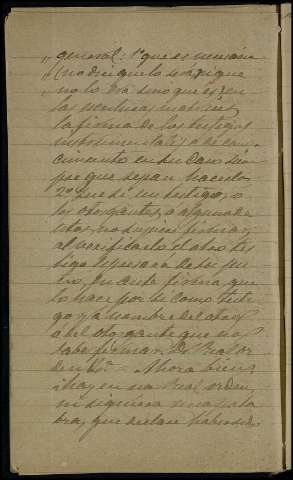 „ general: 1º que es necesaria
„ (no dice que lo será, ni que
no lo era sino que es) en
las escrituras matrices
la firma de los testigos
instrumentales o de cono
cimiento en su caso siem
pre que sepan hacerlo
2º que si un testigo, o
los otorgantes, o alguno de
ellos, no supiere firmar,
al verificarlo el otro tes
tigo espresará de su pu
ño, en ante firma, que
lo hace por sí como testi
go y a nombre del otro
o del otorgante que no
sabe firmar. De Real or
den etc. = Ahora bien:
¿hay en esa Real orden,
ni siquiera una pala
bra, que declare